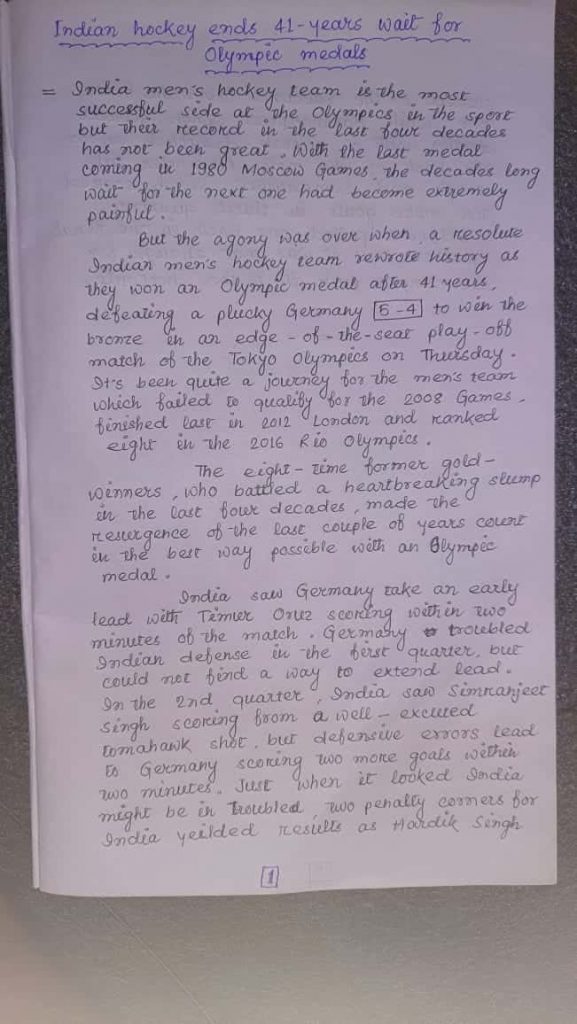 Indian hockey ends 41-years wait for
Olympic medals
= India men's hockey team is the most
successful side at the Olympics in the sport
but their record in the last four decades
has not been great. With the last medal
coming in 1980 Moscow Games, the decades long
wait for the next one had become extremely
painful.
But the agony was over when a resolute
Indian men's hockey team rewrote history as
they won an Olympic medal after 41 years,
defeating a plucky Germany 5-4 to win the
bronze in an edge-of-the-seat play-off
match of the Tokyo Olympics on Thursday.
It's been quite a journey for the men's team
which failed to qualify for the 2008 Games,
finished last in 2012 London and ranked
eight in the 2016 Rio Olympics.
The eight-time former gold-
winners, who battled a heartbreaking slump
in the last four decades, made the
resurgence of the last couple of years count
in the best way possible with an Olympic
medal.
India saw Germany take an early
lead with Timur Oruz scoring within two
minutes of the match. Germany troubled
Indian defense in the first quarter, but
could not find a way to extend lead.
In the 2nd quarter, India saw Simranjeet
Singh scoring from a well-excuted
tomahawk shot, but defensive errors lead
to Germany scoring two more goals within
two minutes. Just when it looked India
might be in troubled, two penalty corners for
India yeilded results as Hardik Singh
1